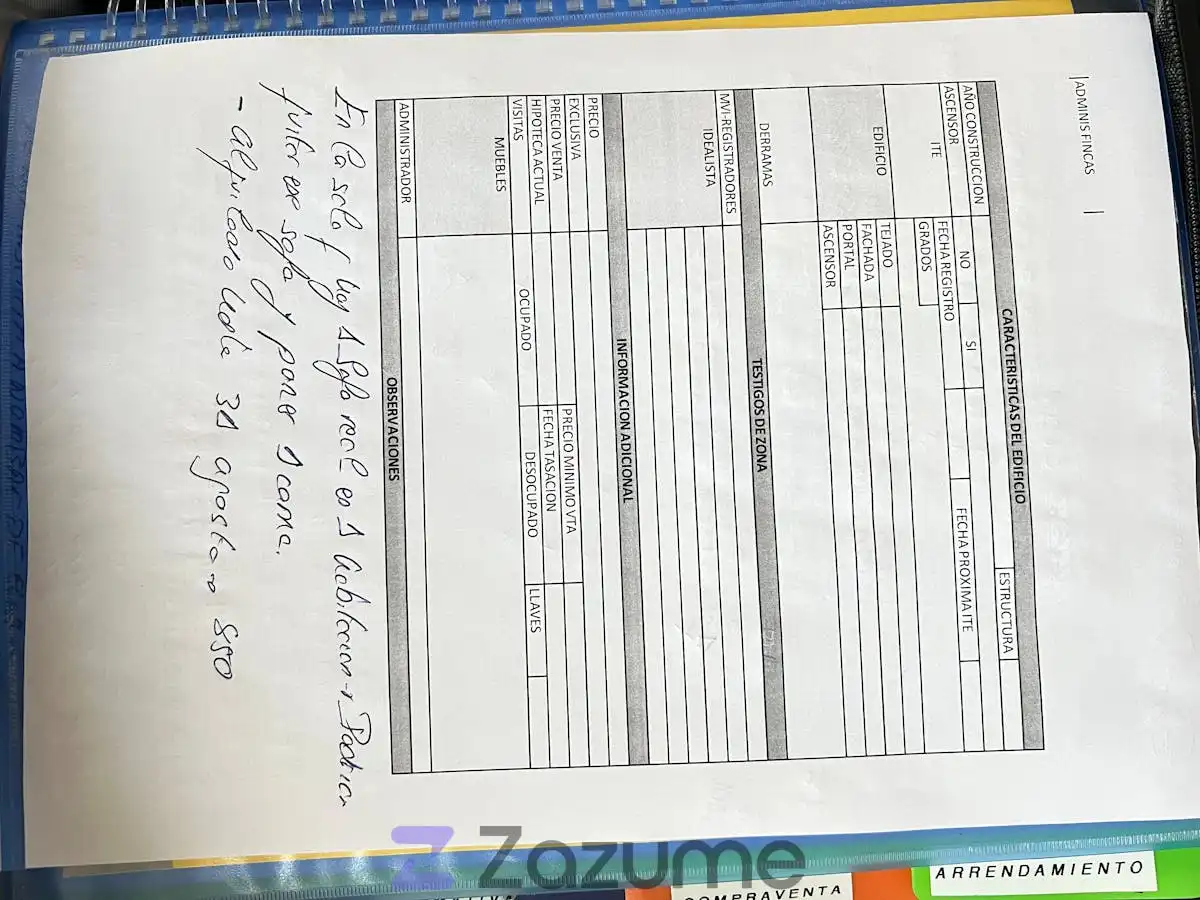 ADMINIS FINCAS
CARACTERISTICAS DEL EDIFICIO
AÑO CONSTRUCCION
ESTRUCTURA
ASCENSOR NO SI
ITE FECHA REGISTRO FECHA PROXIMA ITE
GRADOS
EDIFICIO
TEJADO
FACHADA
PORTAL
ASCENSOR
DERRAMAS
TESTIGOS DE ZONA
MVI-REGISTRADORES
IDEALISTA
INFORMACION ADICIONAL
PRECIO
EXCLUSIVA
PRECIO VENTA PRECIO MINIMO VTA
HIPOTECA ACTUAL FECHA TASACION
VISITAS OCUPADO DESOCUPADO LLAVES
MUEBLES
ADMINISTRADOR
OBSERVACIONES
En la sala hay 1 sofa
quitar ese sofa y poner 1 cama.
- alquilado hasta 31 agosto 850
COMPRAVENTA
ARRENDAMIENTO
Zazume